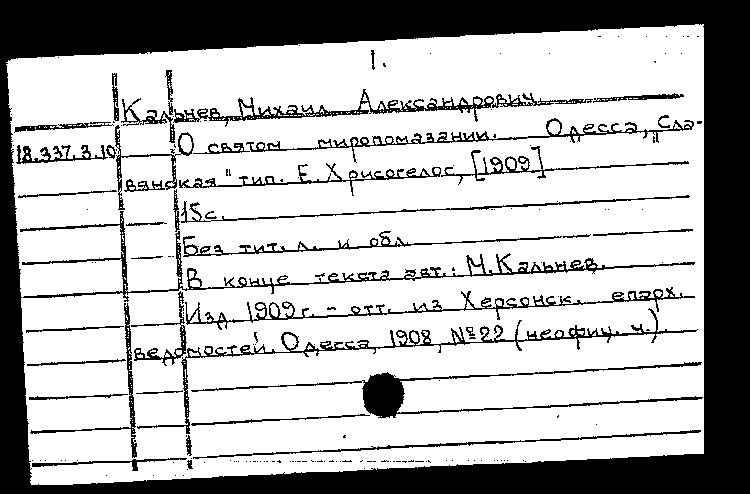 1.
Кальнев, Михаил Александрович.
18.337.3.10 О святом миропомазании. Одесса, „Сла-
вянская" тип. Е. Хрисогелос, [1909]
15с.
Без тит. л. и обл.
В конце текста авт.: М. Кальнев.
Изд. 1909 г. - отт. из Херсонск. епарх.
ведомостей. Одесса, 1908, №22 (неофиц. ч.).